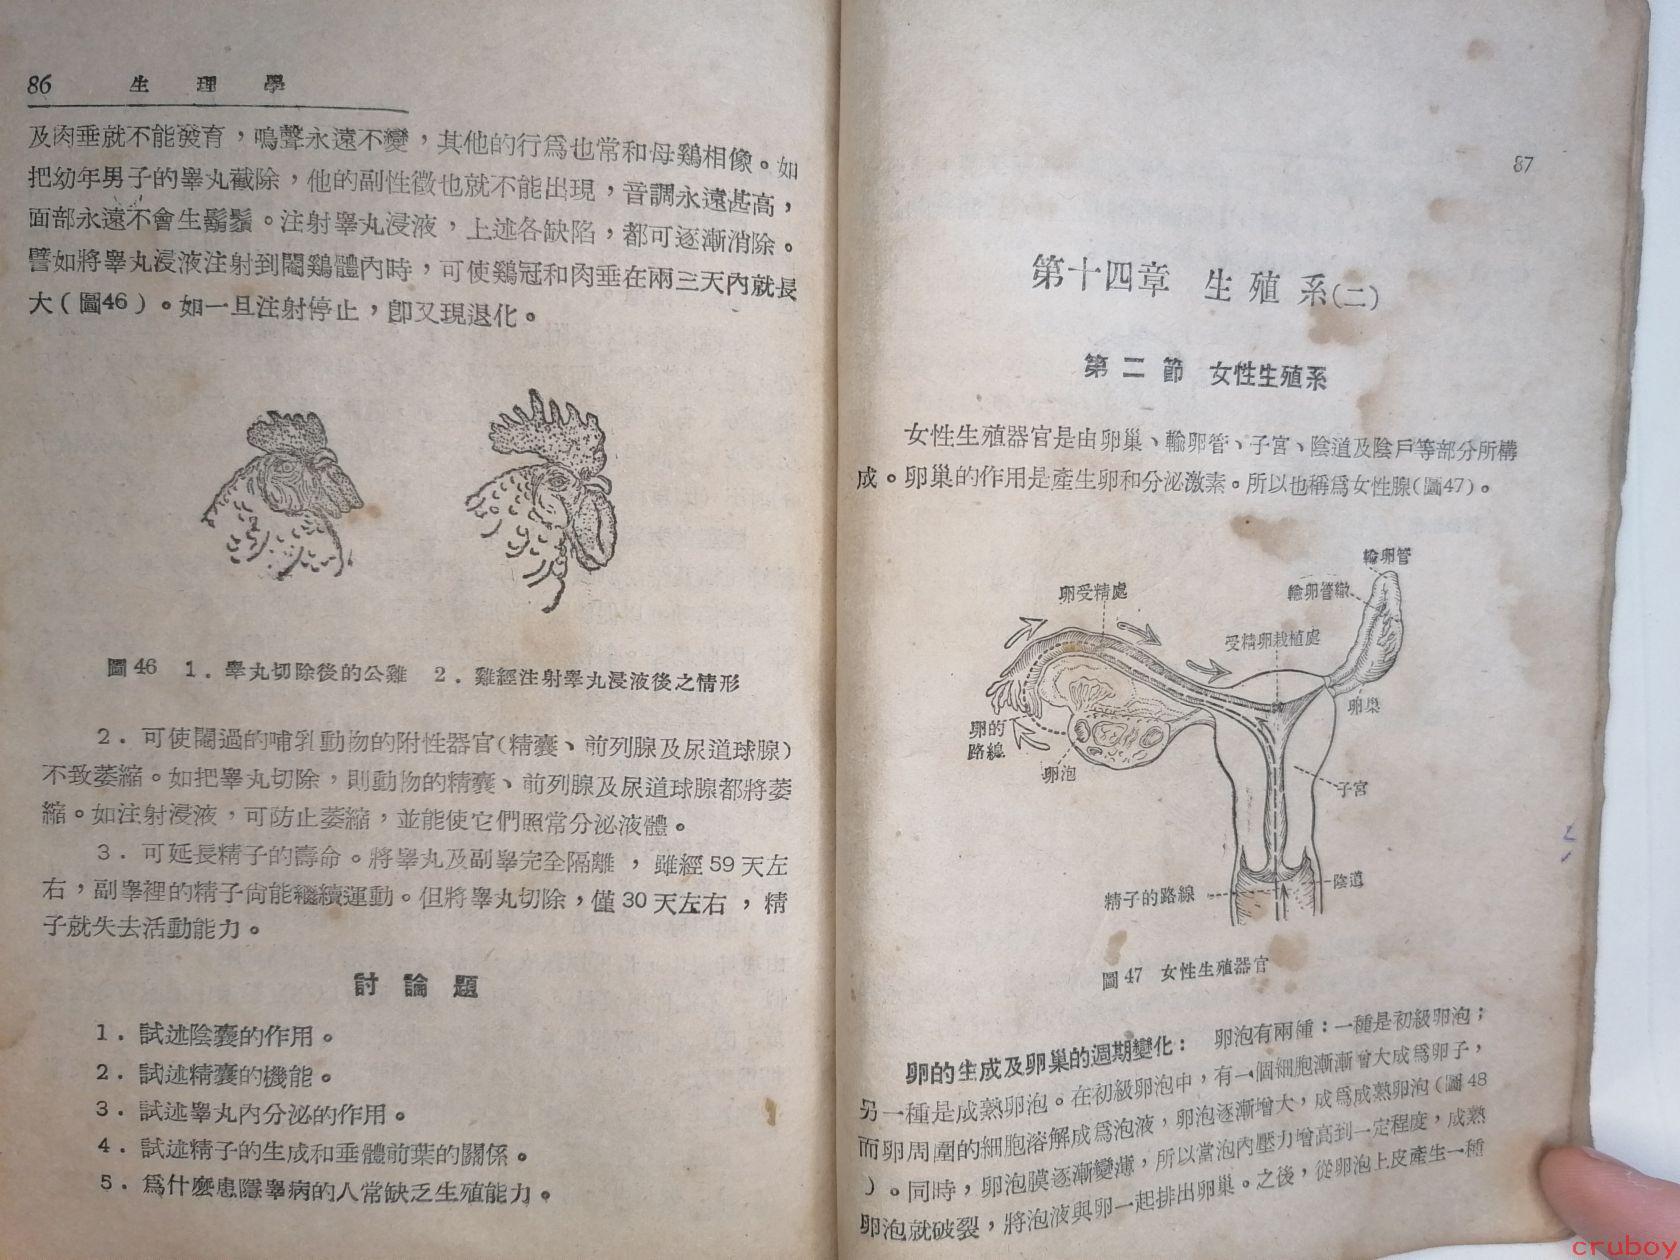 86 生理學
及肉垂就不能發育，鳴聲永遠不變，其他的行爲也常和母鷄相像。如
把幼年男子的睾丸截除，他的副性徵也就不能出現，音調永遠甚高，
面部永遠不會生鬍鬚。注射睾丸浸液，上述各缺陷，都可逐漸消除。
譬如將睾丸浸液注射到閹鷄體內時，可使鷄冠和肉垂在兩三天內就長
大(圖46)。如一旦注射停止，卽又現退化。
圖46 1．睾丸切除後的公雞 2．雞經注射睾丸浸液後之情形
2．可使閹過的哺乳動物的附性器官(精囊、前列腺及尿道球腺)
不致萎縮。如把睾丸切除，則動物的精囊、前列腺及尿道球腺都將萎
縮。如注射浸液，可防止萎縮，並能使它們照常分泌液體。
3．可延長精子的壽命。將睾丸及副睾完全隔離，雖經59天左
右，副睾裡的精子尙能繼續運動。但將睾丸切除，僅30天左右，精
子就失去活動能力。
討論題
1．試述陰囊的作用。
2．試述精囊的機能。
3．試述睾丸內分泌的作用。
4．試述精子的生成和垂體前葉的關係。
5．爲什麼患隱睾病的人常缺乏生殖能力。
87
第十四章 生殖系(二)
第二節 女性生殖系
女性生殖器官是由卵巢、輸卵管、子宮、陰道及陰戶等部分所構
成。卵巢的作用是產生卵和分泌激素。所以也稱爲女性腺(圖47)。
輸卵管
卵受精處
輸卵管繖
受精卵栽植處
卵巢
卵的
路線
卵泡
子宮
陰道
精子的路線
圖47 女性生殖器官
卵的生成及卵巢的週期變化： 卵泡有兩種：一種是初級卵泡；
另一種是成熟卵泡。在初級卵泡中，有一個細胞漸漸增大成爲卵子，
而卵周圍的細胞溶解成爲泡液，卵泡逐漸增大，成爲成熟卵泡(圖48
)。同時，卵泡膜逐漸變薄，所以當泡內壓力增高到一定程度，成熟
卵泡就破裂，將泡液與卵一起排出卵巢。之後，從卵泡上皮產生一種
cruboy